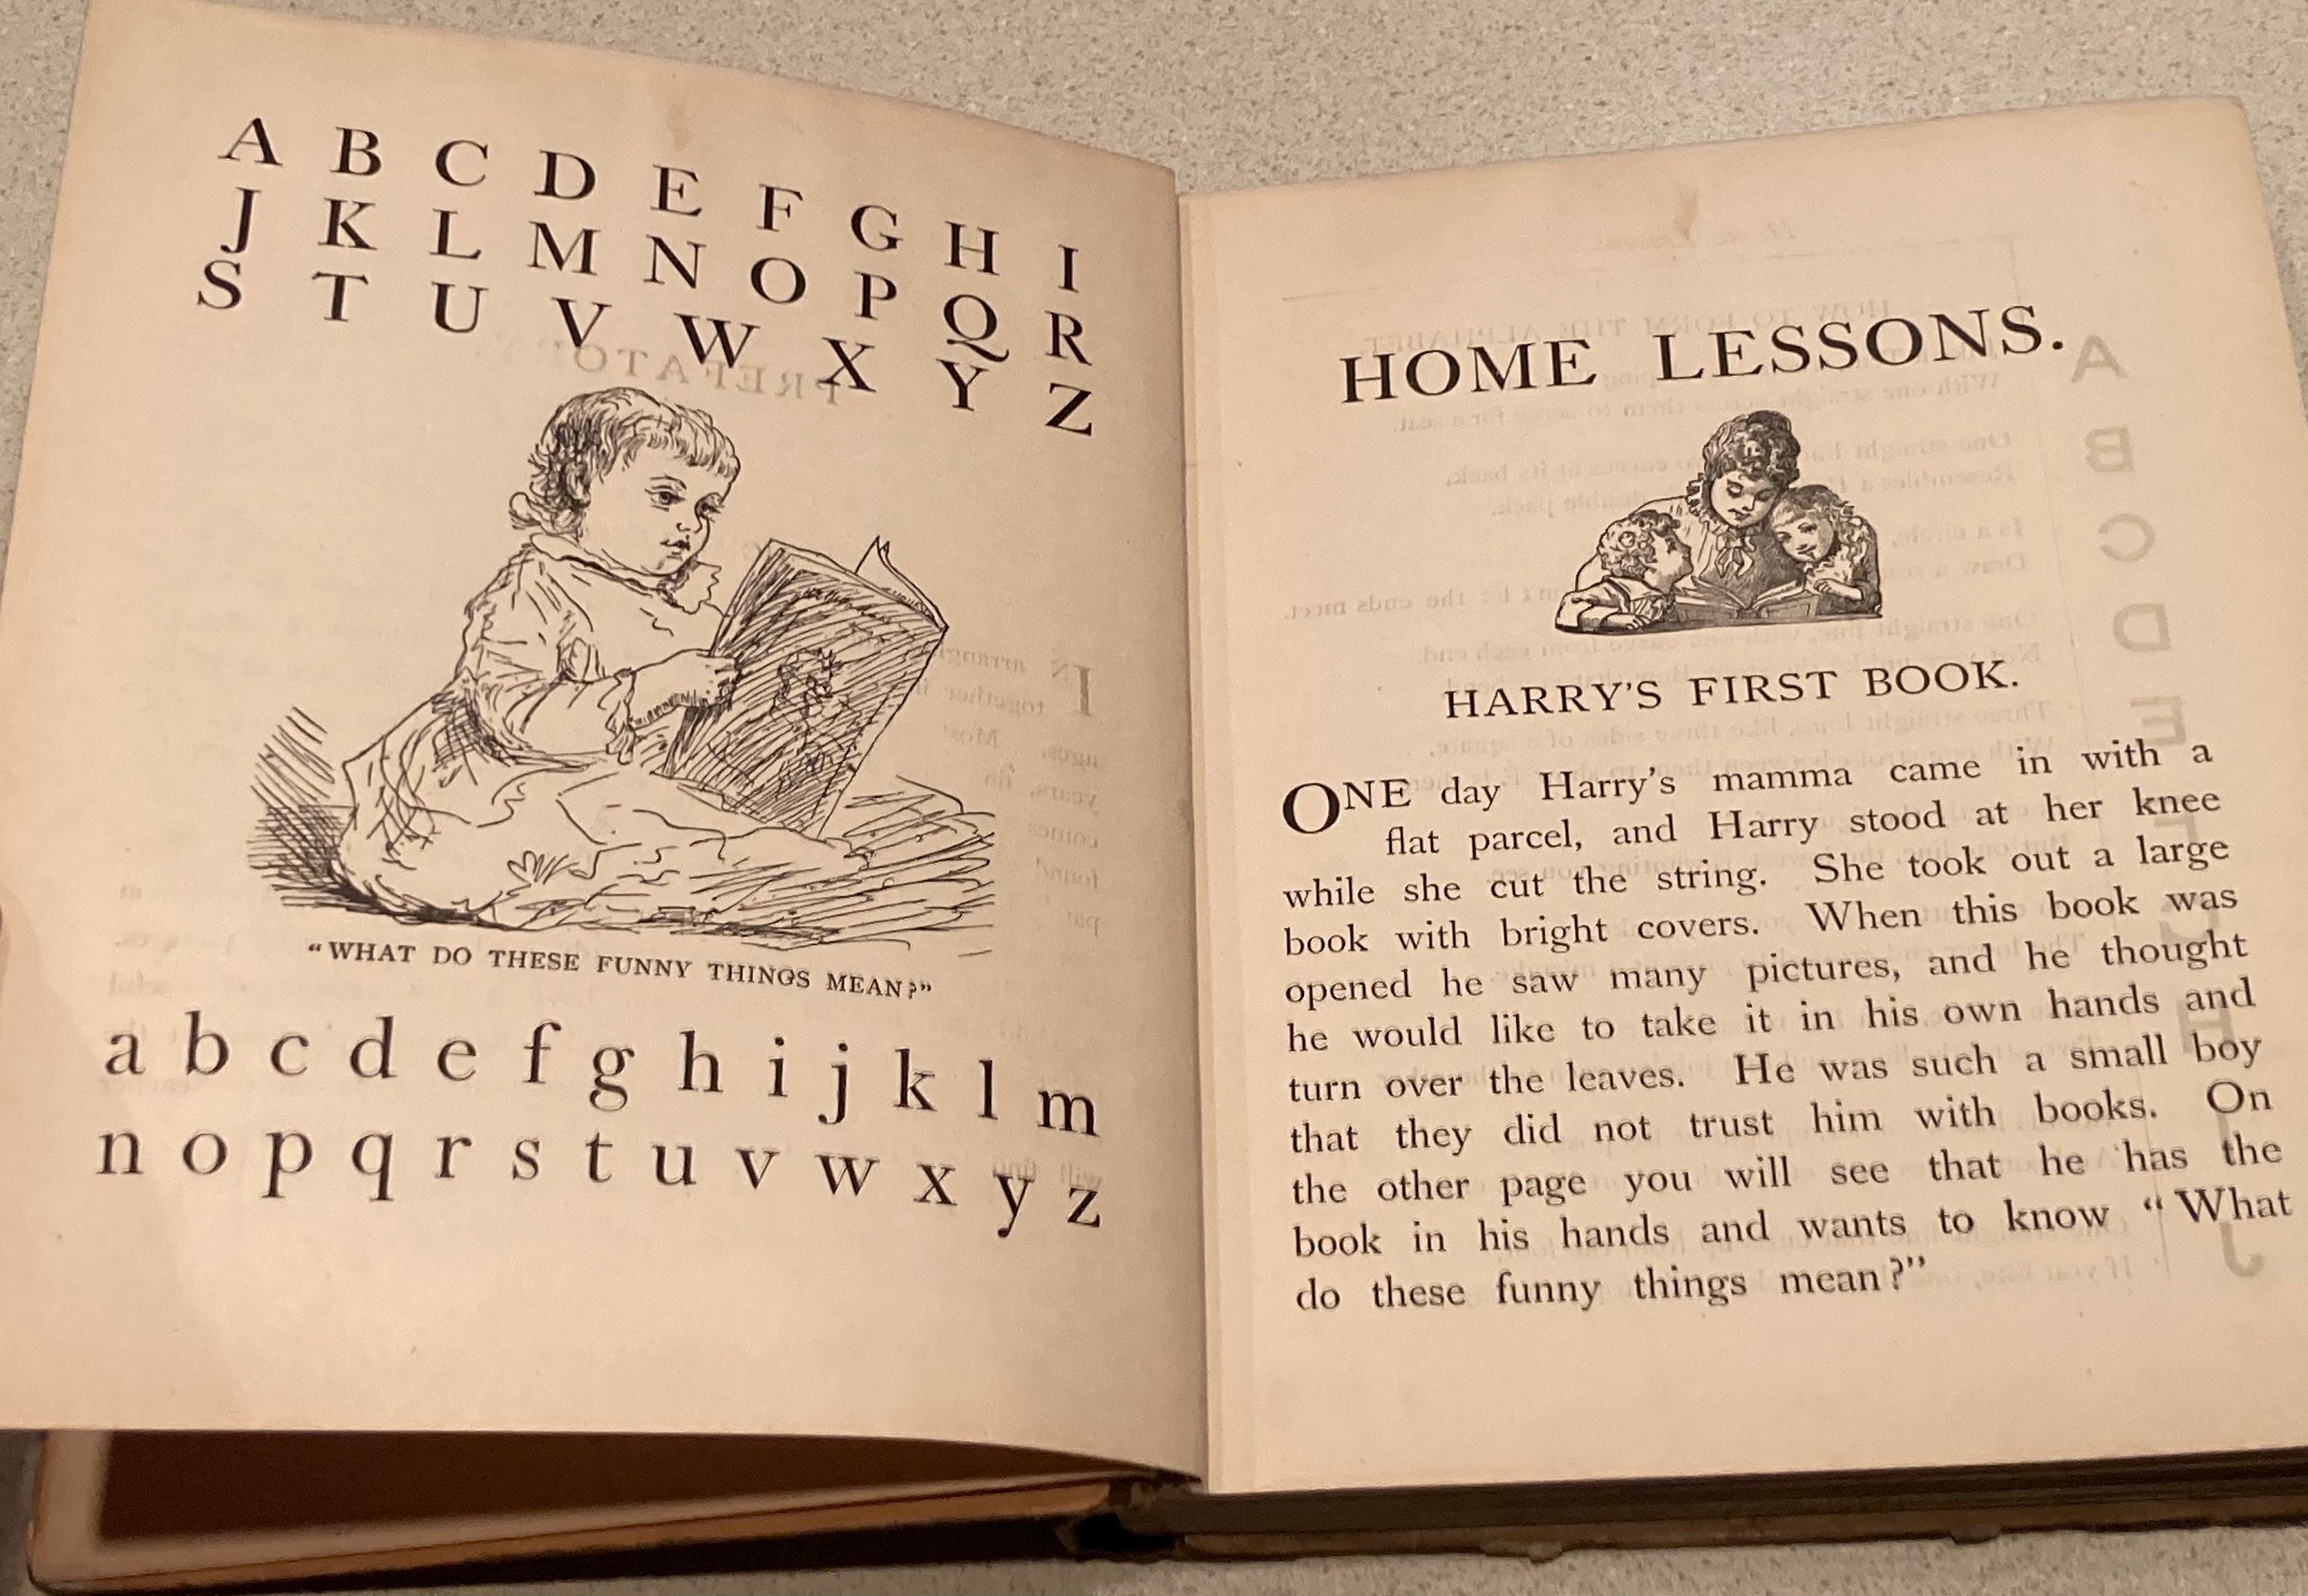 A B C D E F G H I
J K L M N O P Q R
S T U V W X Y Z
"WHAT DO THESE FUNNY THINGS MEAN?"
a b c d e f g h i j k l m
n o p q r s t u v w x y z
HOME LESSONS.
HARRY'S FIRST BOOK.
ONE day Harry's mamma came in with a
flat parcel, and Harry stood at her knee
while she cut the string. She took out a large
book with bright covers. When this book was
opened he saw many pictures, and he thought
he would like to take it in his own hands and
turn over the leaves. He was such a small boy
that they did not trust him with books. On
the other page you will see that he has the
book in his hands and wants to know "What
do these funny things mean?"